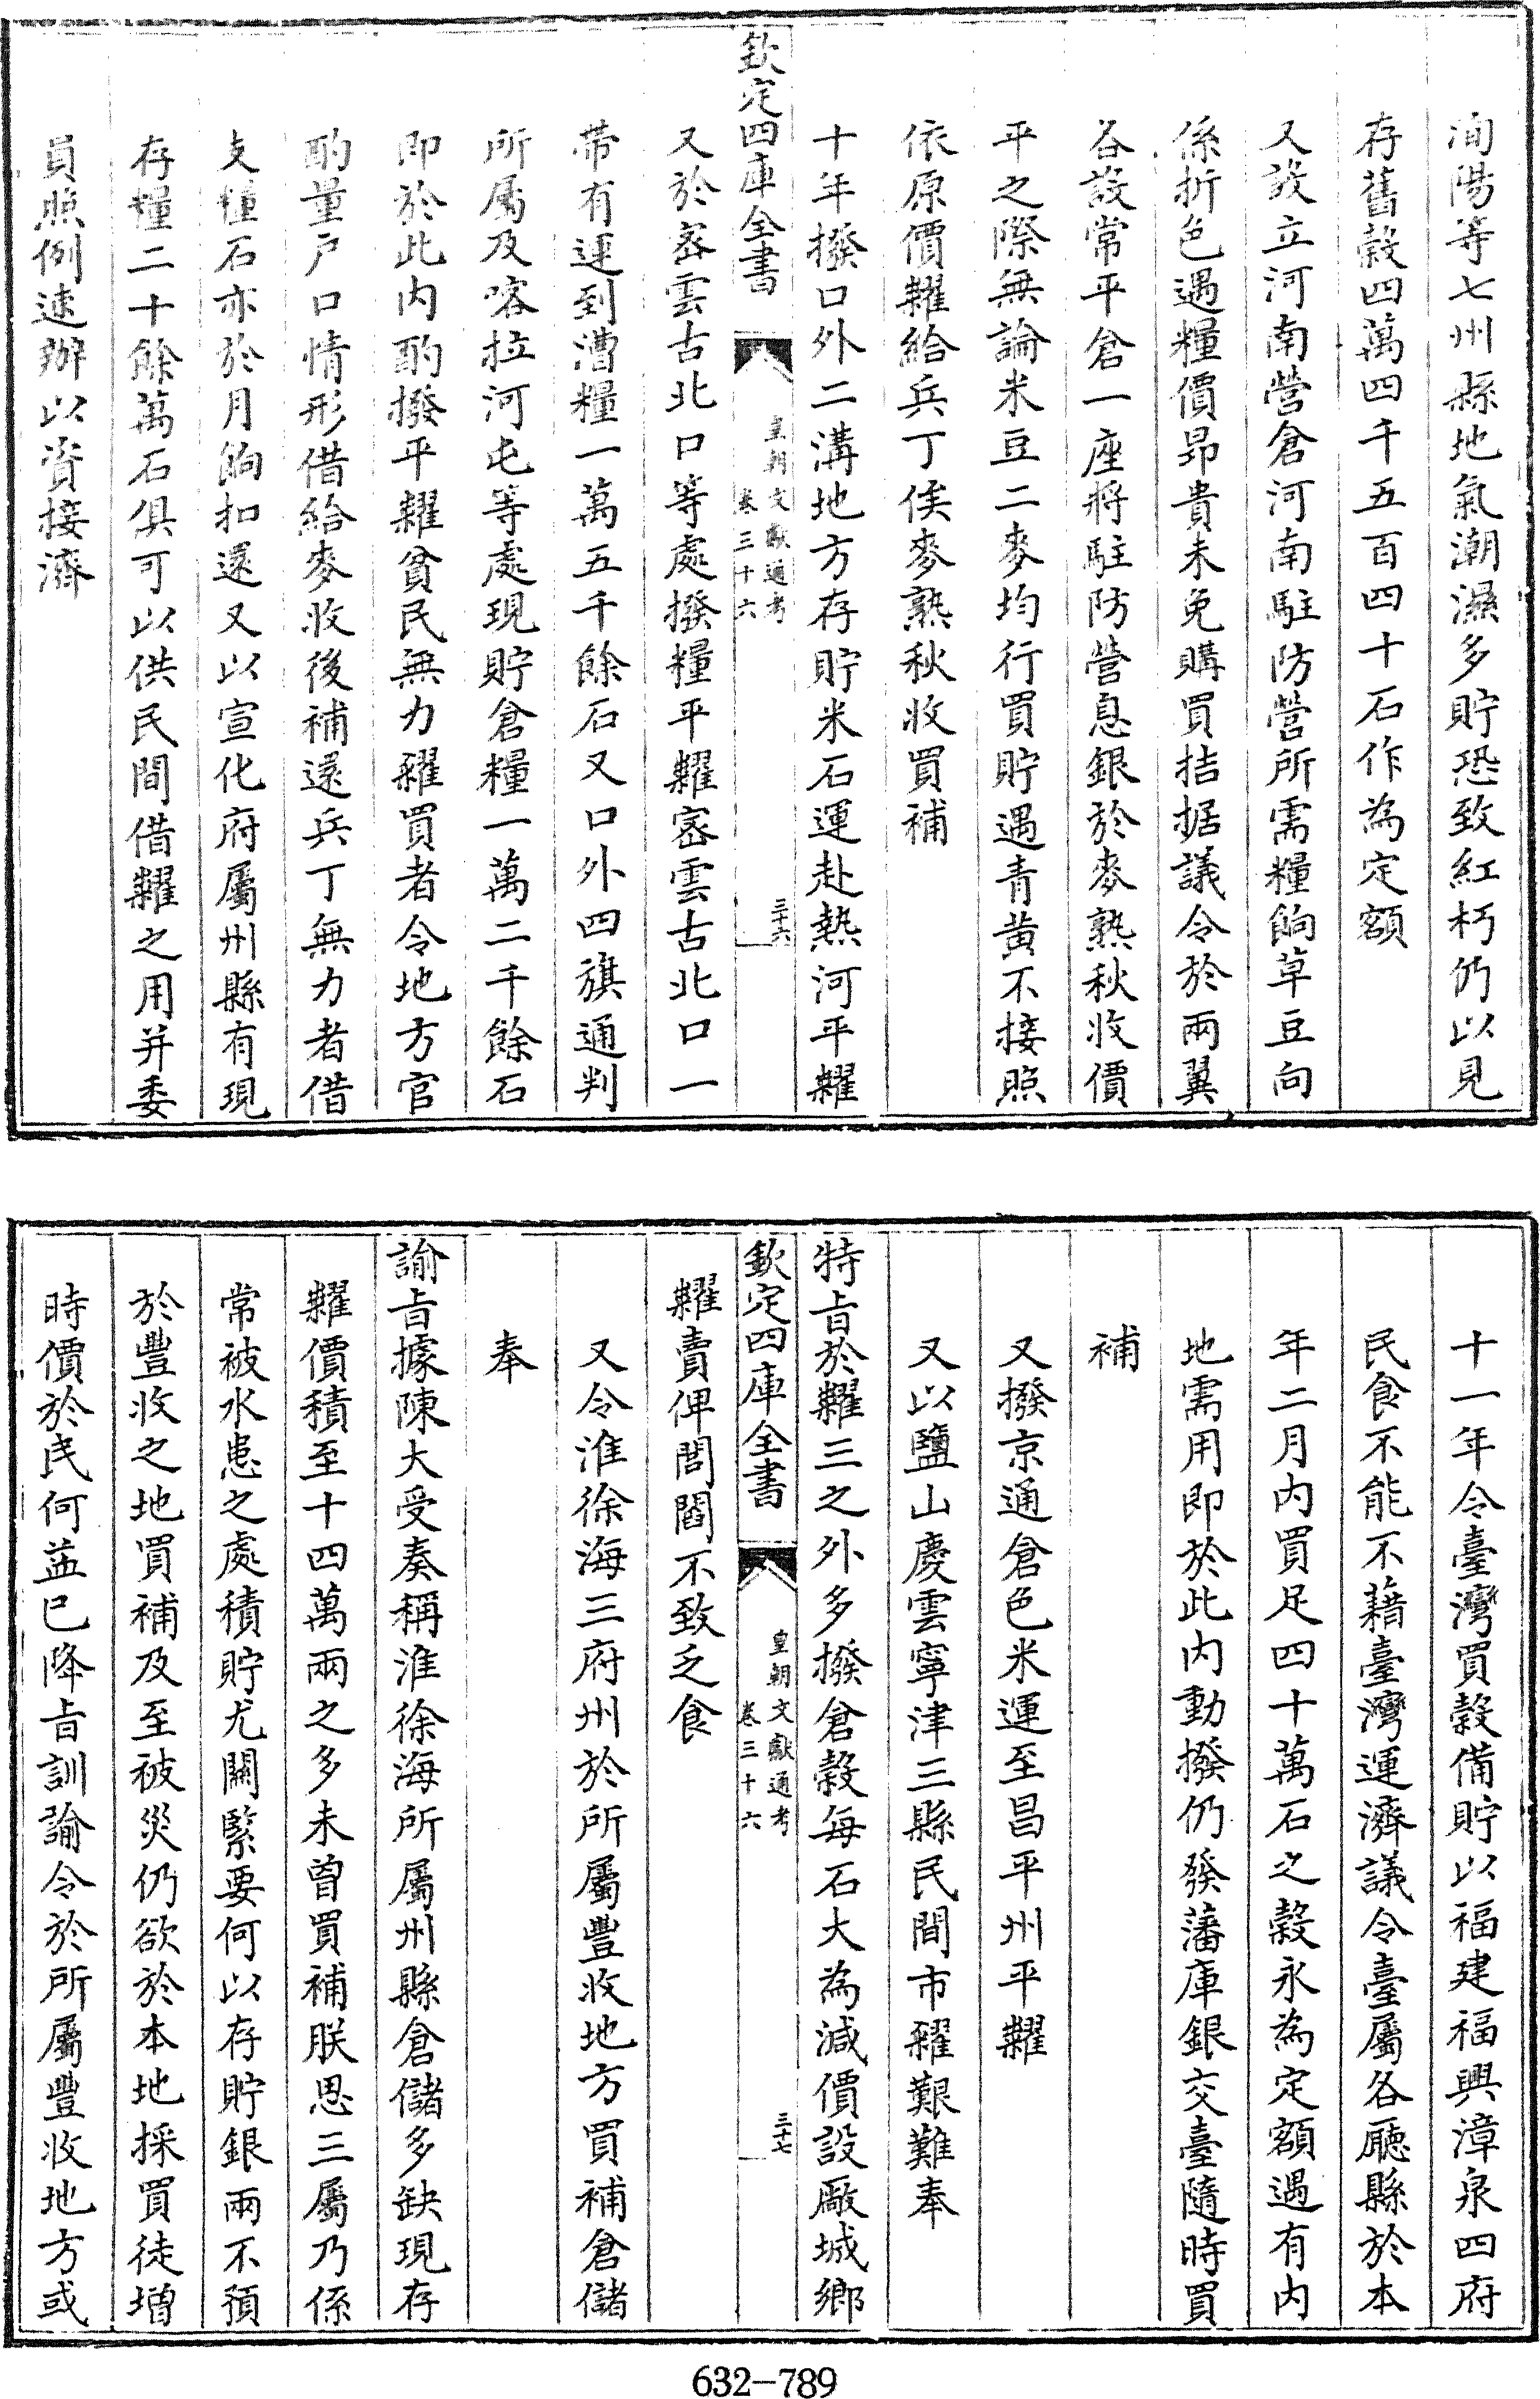 洵陽等七州縣地氣潮濕多貯恐致紅朽仍以見
存舊穀四萬四千五百四十石作為定額
又設立河南營倉河南駐防營所需糧餉草豆向
係折色遇糧價昂貴未免購買拮据議令於兩翼
各設常平倉一座將駐防營息銀於麥熟秋收價
平之際無論米豆二麥均行買貯遇青黃不接照
依原價糶給兵丁俟麥熟秋收買補
十年撥口外二溝地方存貯米石運赴熱河平糶
欽定四庫全書
皇朝文獻通考
卷三十六
三十六
又於密雲古北口等處撥糧平糶密雲古北口一
帶有運到漕糧一萬五千餘石又口外四旗通判
所屬及喀拉河屯等處現貯倉糧一萬二千餘石
即於此內酌撥平糶貧民無力糴買者令地方官
酌量戶口情形借給麥收後補還兵丁無力者借
支糧石亦於月餉扣還又以宣化府屬州縣有現
存糧二十餘萬石俱可以供民間借糶之用并委
員照例速辦以資接濟
十一年令臺灣買穀備貯以福建福興漳泉四府
民食不能不藉臺灣運濟議令臺屬各廳縣於本
年二月內買足四十萬石之穀永為定額遇有內
地需用即於此內動撥仍發藩庫銀交臺隨時買
補
又撥京通倉色米運至昌平州平糶
又以鹽山慶雲寧津三縣民間市糴艱難奉
特旨於糶三之外多撥倉穀每石大為減價設廠城鄉
欽定四庫全書
皇朝文獻通考
卷三十六
三十七
糶賣俾閭閻不致乏食
又令淮徐海三府州於所屬豐收地方買補倉儲
奉
諭旨據陳大受奏稱淮徐海所屬州縣倉儲多缺現存
糶價積至十四萬兩之多未曾買補朕思三屬乃係
常被水患之處積貯尤關緊要何以存貯銀兩不預
於豐收之地買補及至被災仍欲於本地採買徒增
時價於民何益已降旨訓諭令於所屬豐收地方或
632-789